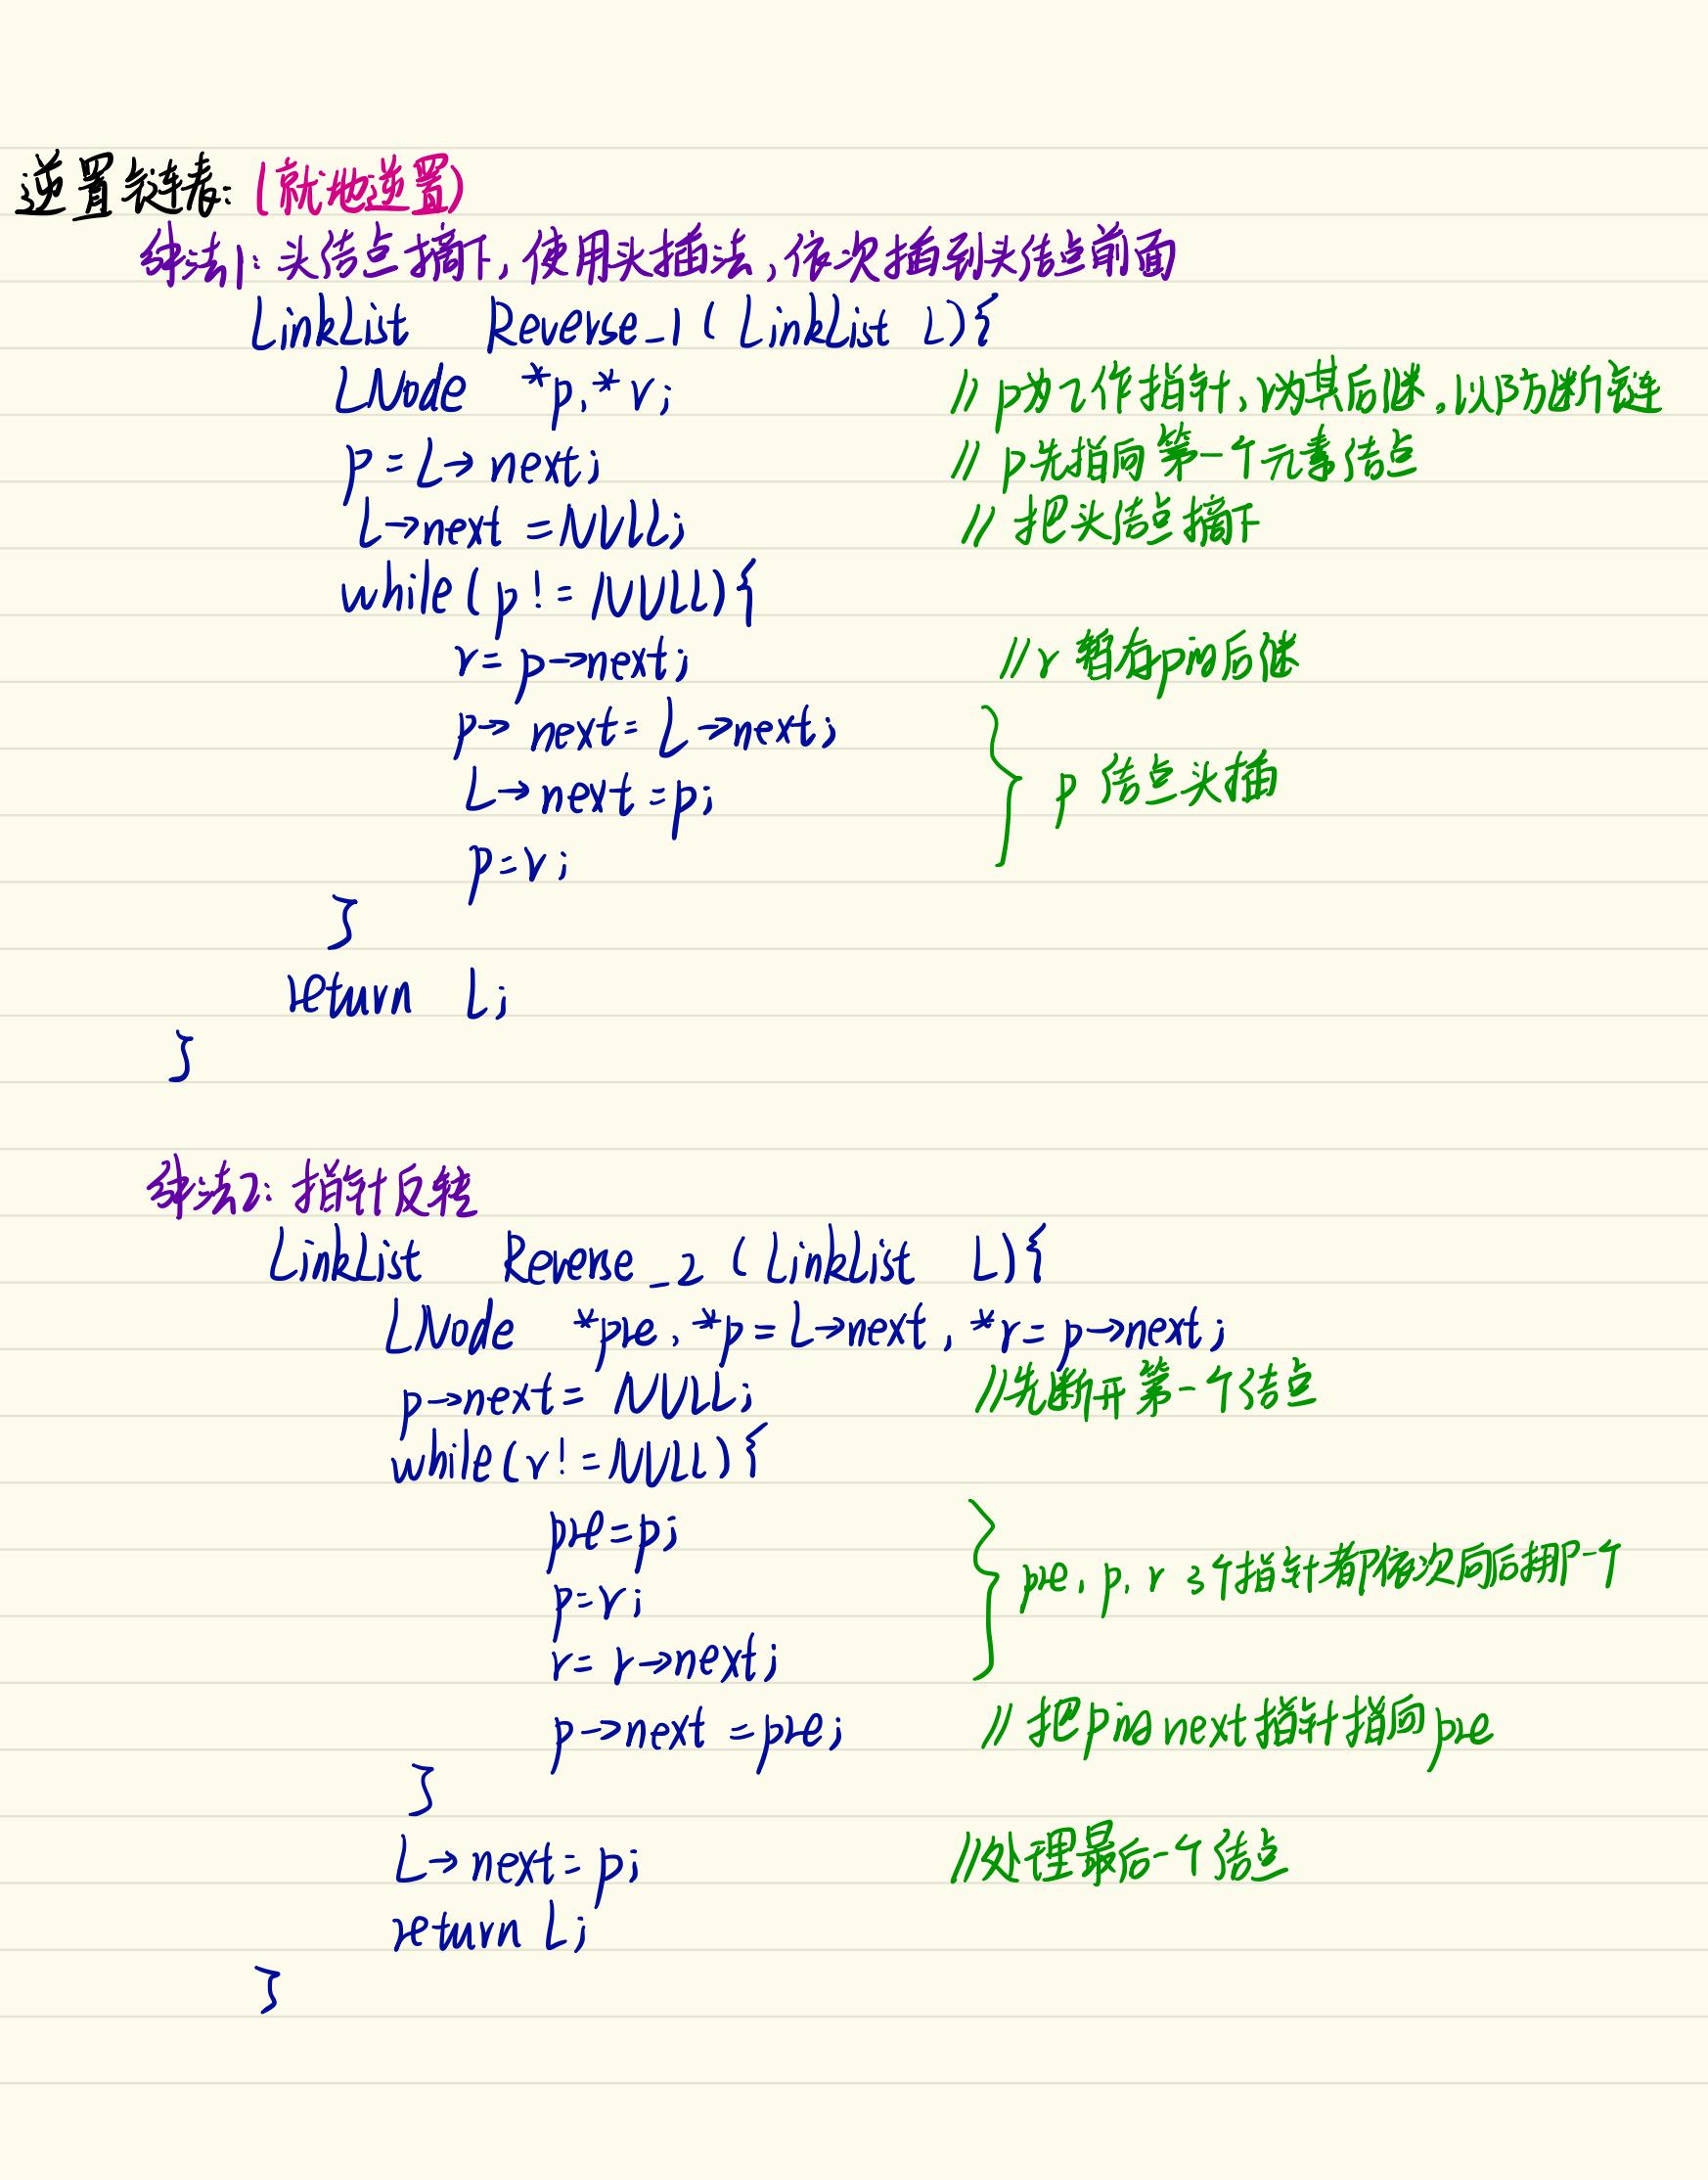 逆置链表:(就地逆置)
算法1:头结点摘下,使用头插法,依次插到头结点前面
LinkList Reverse_1 ( LinkList L){
LNode *p,*r; // p为工作指针,r为其后继,以防断链
p = L→next; // p先指向第一个元素结点
L→next = NULL; // 把头结点摘下
while(p != NULL){
r = p→next; // r 暂存p的后继
p→next = L→next;
L→next = p; } p 结点头插
p = r;
}
return L;
}
算法2:指针反转
LinkList Reverse_2 ( LinkList L){
LNode *pre, *p = L→next, *r = p→next;
p→next = NULL; //先断开第一个结点
while(r != NULL){
pre = p;
p = r; } pre, p, r 3个指针都依次向后挪一个
r = r→next;
p→next = pre; // 把p的next指针指向pre
}
L→next = p; //处理最后一个结点
return L;
}